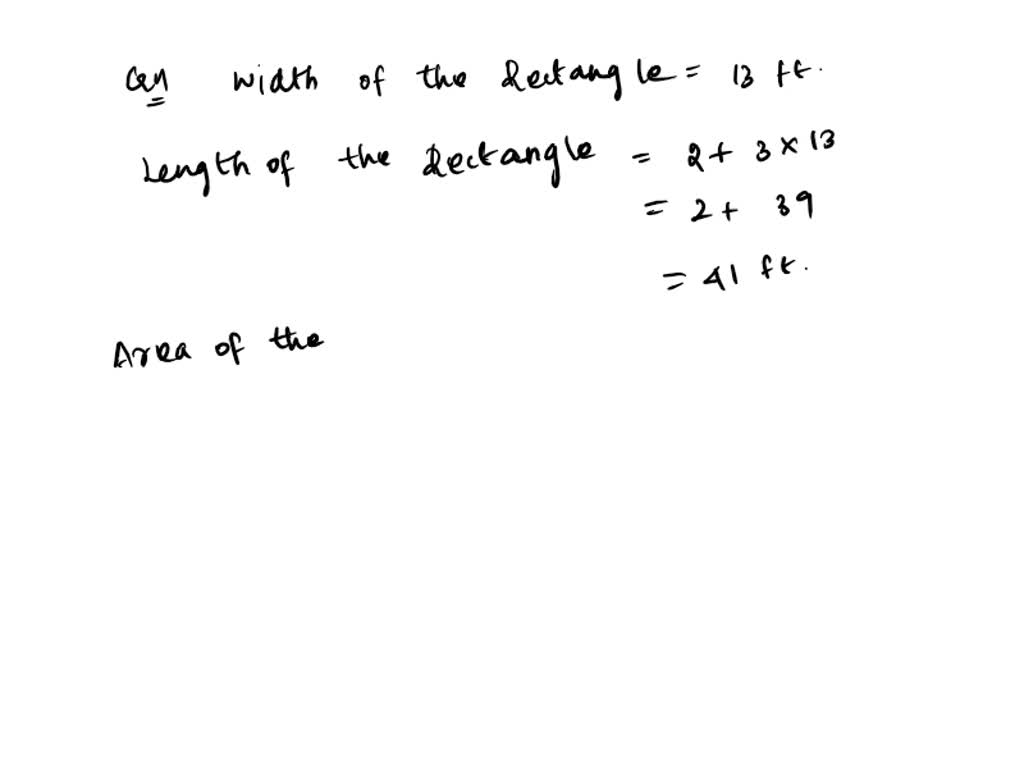 Width of the Rectangle = 13 ft.
Length of the Rectangle = 2 + 3 × 13
= 2 + 39
= 41 ft.
Area of the